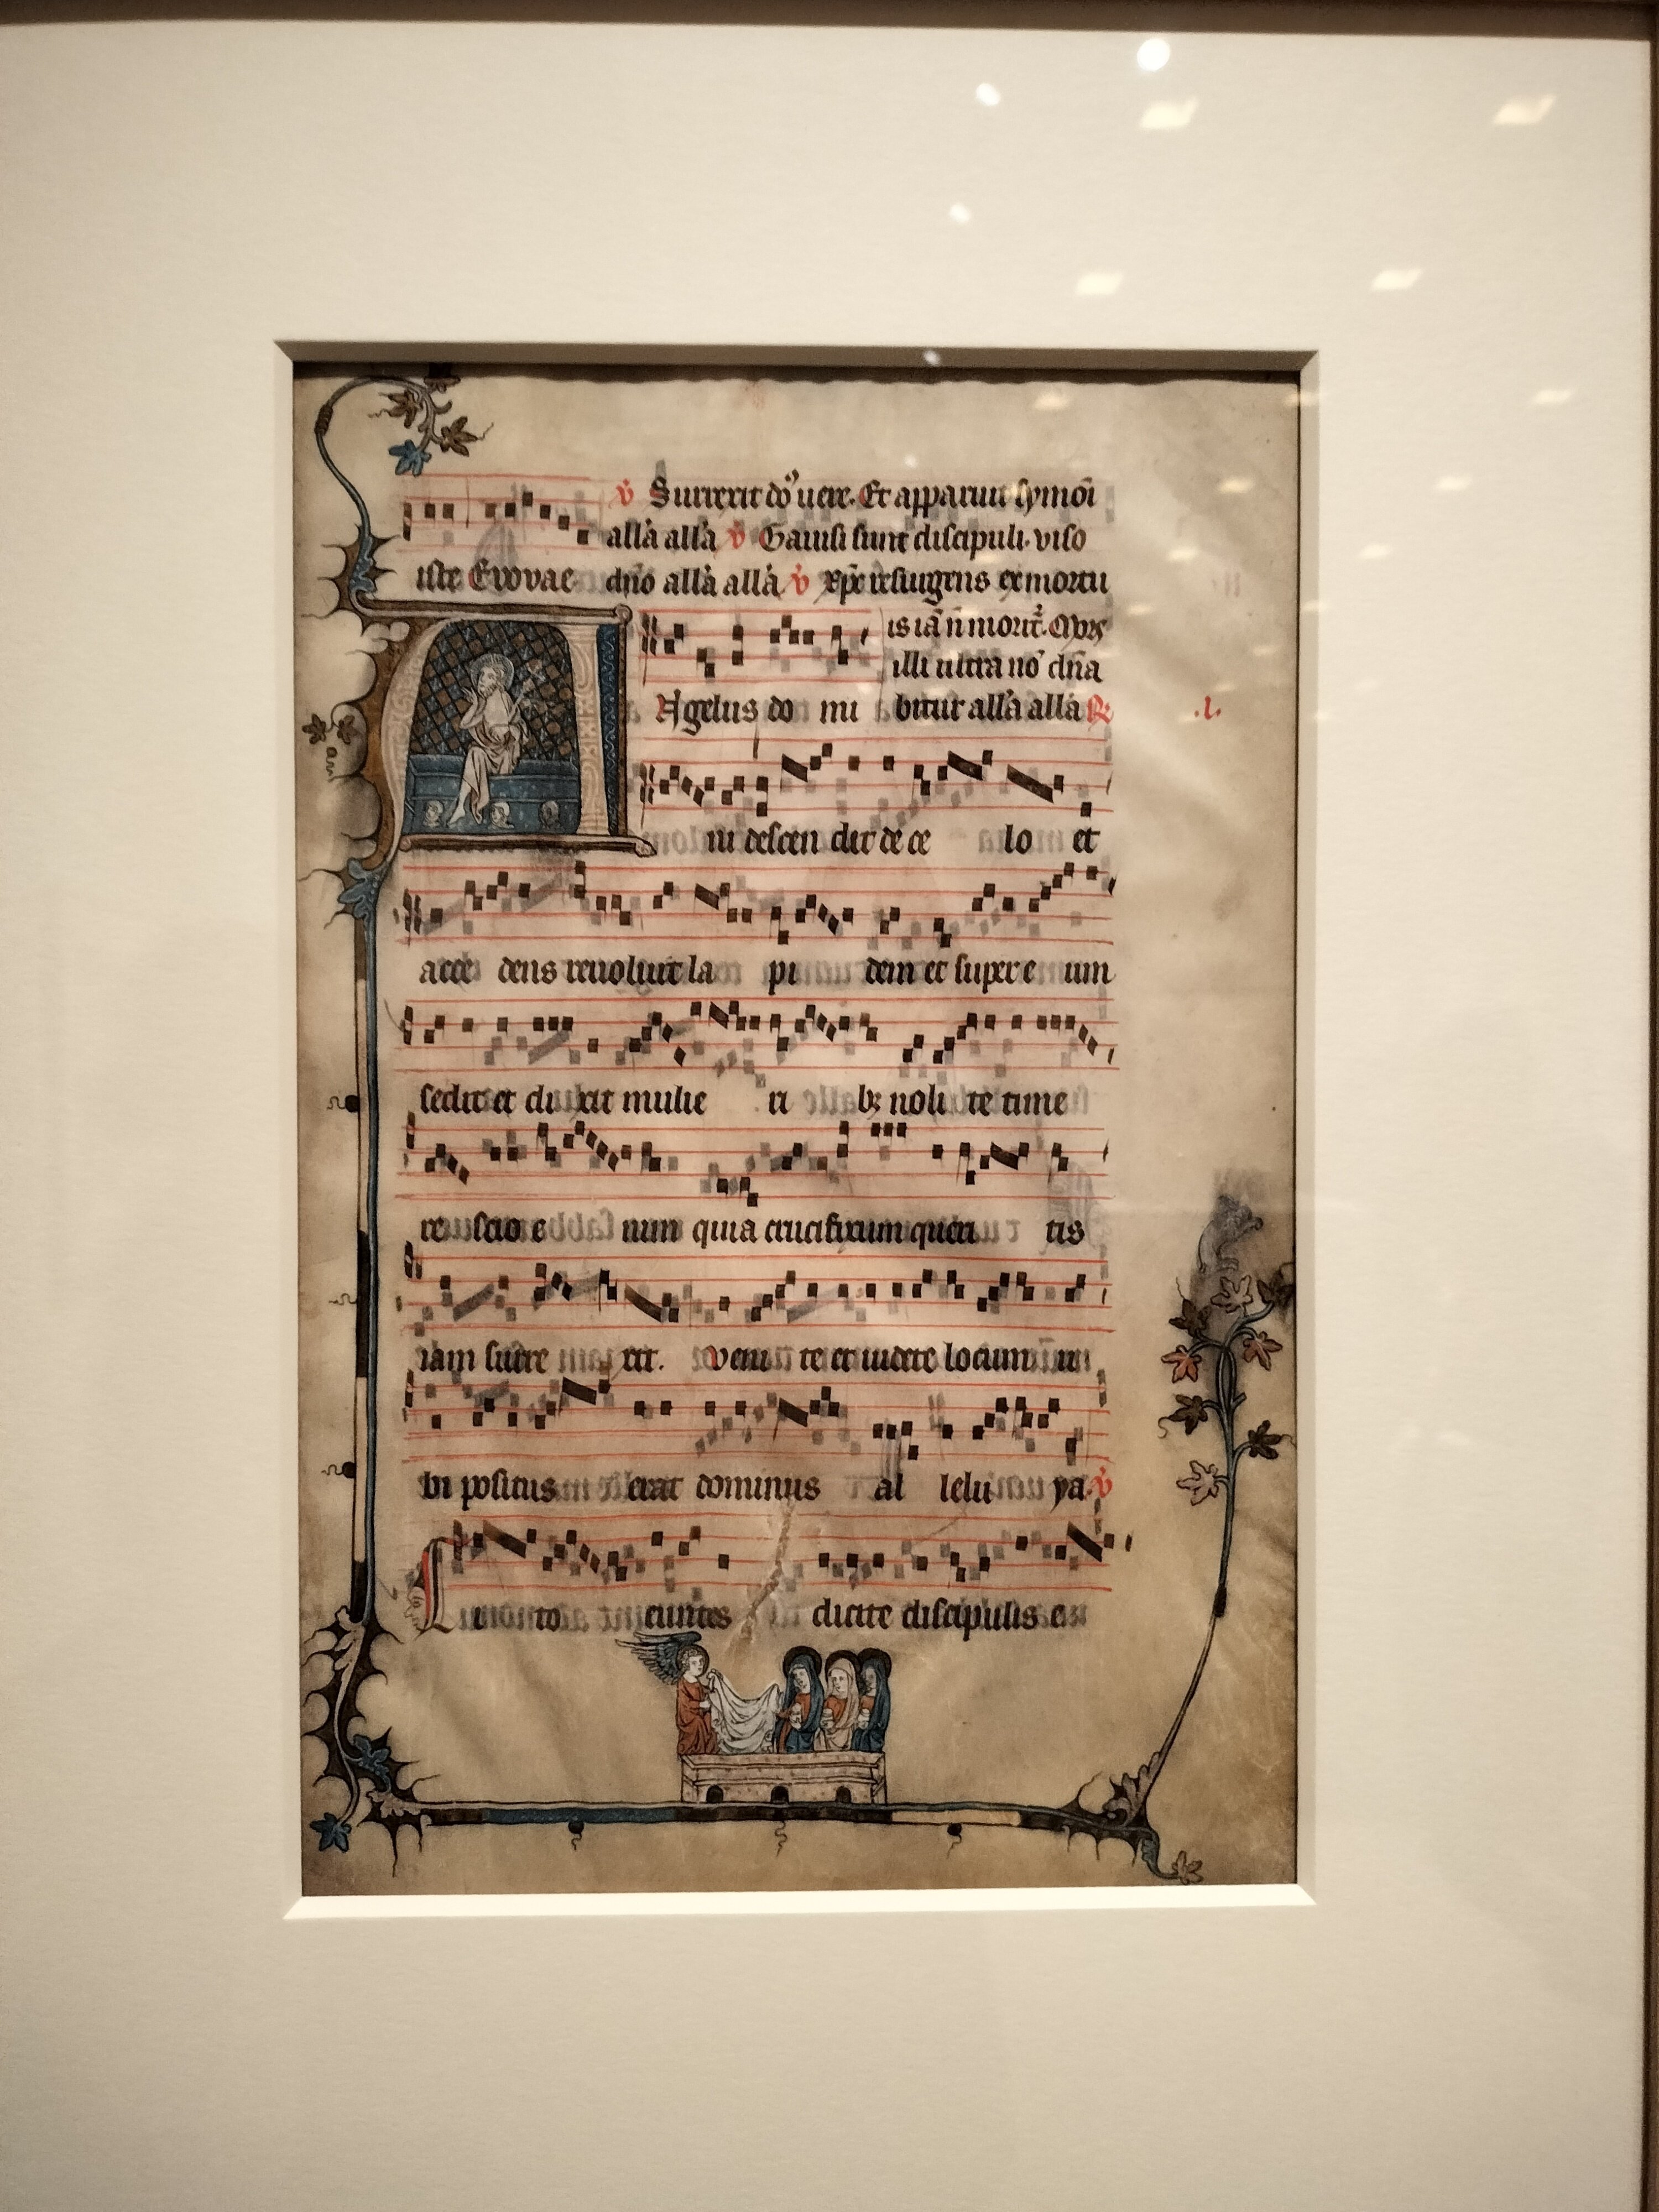 v̇ Surrexit do᷒ uere. Et apparuit symoī
alla̍ alla̍ v̇ Gauisi sunt discipuli. viso
iste Evovae dn̄o alla̍ alla̍ v̇ xp̄c resurgens ex mortu
is iā n̄ morit᷑. Mors
illi ultra no̍ dn̄a
Ngelus do mi bitur alla̍ alla̍ R. .i.
ni descen dit de ce lo et
acce dens reuoluit la pi dem et super e um
sedit et di xit mulie ri bꝫ noli te time
re scio e nim quia crucifixum queri tis
iam surre xit. veni te et uidete locum u
bi positus erat dominus al lelu ya. v̇
I to euntes dicite discipulis e